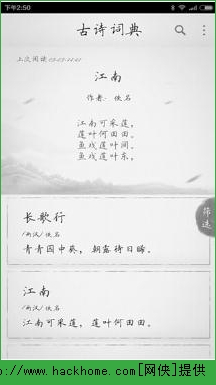 下午2:50
古诗词典
江南
作者：佚名
江南可采莲，
莲叶何田田。
鱼戏莲叶间。
鱼戏莲叶东，
筛选
长歌行
/两汉/佚名
青青园中葵，朝露待日晞。
江南
/两汉/佚名
江南可采莲，莲叶何田田。
://www.hackhome.com[网侠]提供